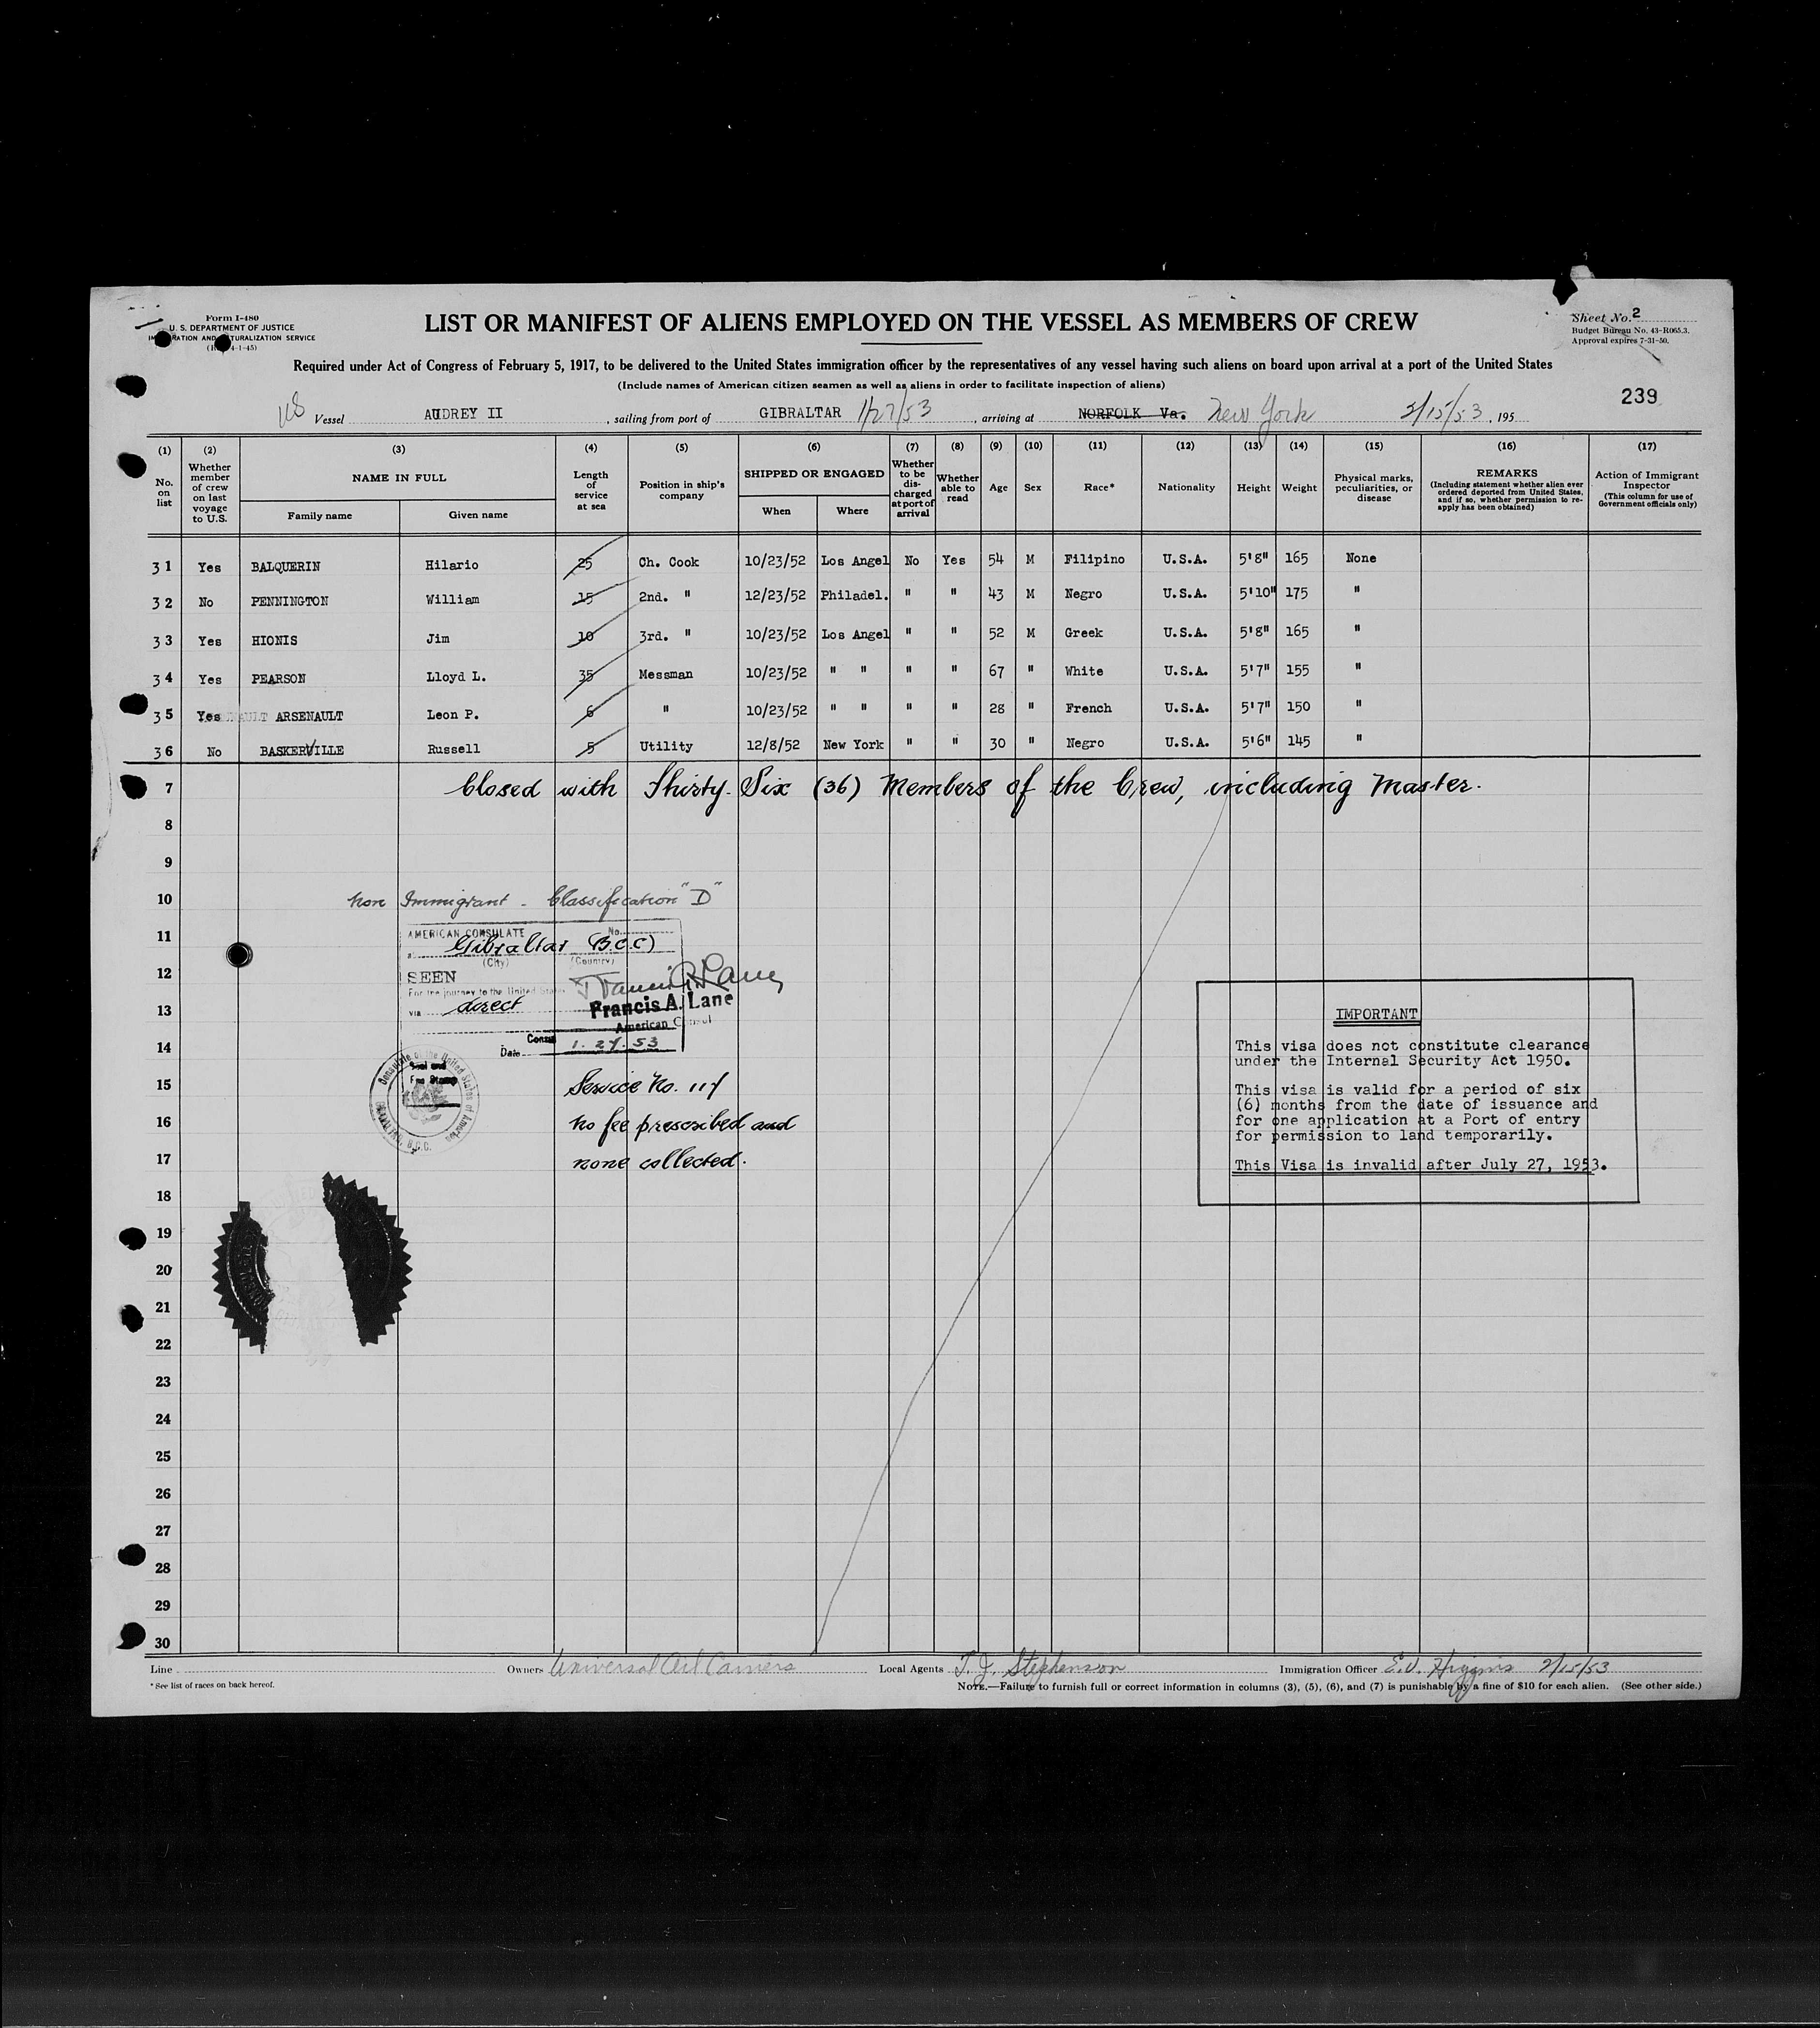 Form I-480
U. S. DEPARTMENT OF JUSTICE
LIST OR MANIFEST OF ALIENS EMPLOYED ON THE VESSEL AS MEMBERS OF CREW
Sheet No. 2
Budget Bureau No. 43-R065.3.
Approval expires 7-31-50.
Required under Act of Congress of February 5, 1917, to be delivered to the United States immigration officer by the representatives of any vessel having such aliens on board upon arrival at a port of the United States
(Include names of American citizen seamen as well as aliens in order to facilitate inspection of aliens)
239
Vessel AUDREY II, sailing from port of GIBRALTAR 1/27/53, arriving at NORFOLK Va. New York 2/15/53, 195
(1) (2) (3) (4) (5) (6) (7) (8) (9) (10) (11) (12) (13) (14) (15) (16) (17)
No. on list
Whether member of crew on last voyage to U.S.
NAME IN FULL
Family name
Given name
Length of service at sea
Position in ship's company
SHIPPED OR ENGAGED
When
Where
Whether to be discharged at port of arrival
Whether able to read
Age
Sex
Race*
Nationality
Height
Weight
Physical marks, peculiarities, or disease
REMARKS
(Including statement whether alien ever ordered deported from United States, and if so, whether permission to re-apply has been obtained)
Action of Immigrant Inspector
(This column for use of Government officials only)
31 Yes BALQUERIN Hilario 25 Ch. Cook 10/23/52 Los Angel No Yes 54 M Filipino U.S.A. 5'8" 165 None
32 No PENNINGTON William 15 2nd. " 12/23/52 Philadel. " " 43 M Negro U.S.A. 5'10" 175 "
33 Yes HIONIS Jim 10 3rd. " 10/23/52 Los Angel " " 52 M Greek U.S.A. 5'8" 165 "
34 Yes PEARSON Lloyd L. 35 Messman 10/23/52 " " " " 67 " White U.S.A. 5'7" 155 "
35 Yes ARSENAULT Leon P. 6 " 10/23/52 " " " " 28 " French U.S.A. 5'7" 150 "
36 No BASKERVILLE Russell 5 Utility 12/8/52 New York " " 30 " Negro U.S.A. 5'6" 145 "
7 Closed with Thirty-Six (36) Members of the Crew, including Master.
8
9
10 Non Immigrant - Classification "D"
11 AMERICAN CONSULATE No.
Gibraltar (B.C.C)
(City) (Country)
12 SEEN
For the journey to the United States
13 via direct
Francis A. Lane
American Consul
14 Consul
Date 1.27.53
Consulate of the United States of America
GIBRALTAR, B.C.C.
Seal and
Fee Stamp
15 Service No. 117
16 No fee prescribed and
17 none collected.
IMPORTANT
This visa does not constitute clearance
under the Internal Security Act 1950.
This visa is valid for a period of six
(6) months from the date of issuance and
for one application at a Port of entry
for permission to land temporarily.
This Visa is invalid after July 27, 1953.
18
19
20
21
22
23
24
25
26
27
28
29
30
Line
Owners Universal Oil Carriers
Local Agents T. J. Stephenson
Immigration Officer E. J. Higgins 2/15/53
*See list of races on back hereof.
NOTE.—Failure to furnish full or correct information in columns (3), (5), (6), and (7) is punishable by a fine of $10 for each alien. (See other side.)